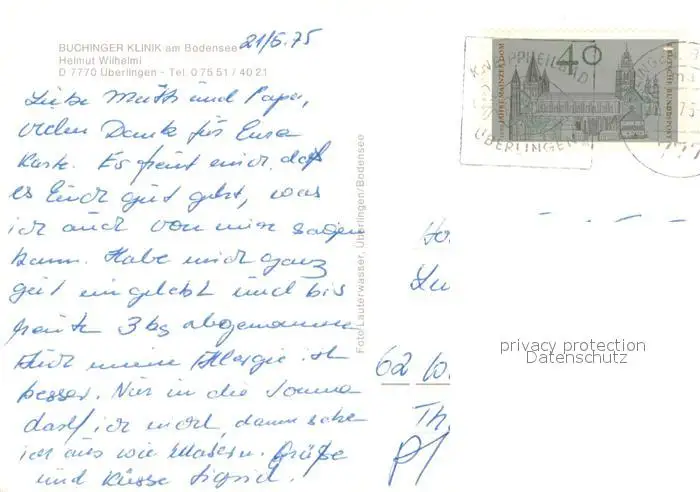 BUCHINGER KLINIK am Bodensee
Helmut Wilhelmi
D 7770 Überlingen - Tel. 0 75 51 / 40 21
21/6.75
Liebe Mutti und Papa,
vielen Dank für Eure
Karte. Es freut mich, daß
es Euch gut geht, was
ich auch von mir sagen
kann. Habe mich ganz
gut eingelebt und bis
heute 3 kg abgenommen
Auch meine Allergie ist
besser. Nur in die Sonne
darf ich nicht, dann sehe
ich aus wie Masern. Grüße
und Küsse Sigrid.
Foto Lauterwasser, Überlingen/Bodensee
40
1000 JAHRE MAINZER DOM
DEUTSCHE BUNDESPOST
KNEIPPHEILBAD
ÜBERLINGEN
62 W
Th
privacy protection
Datenschutz